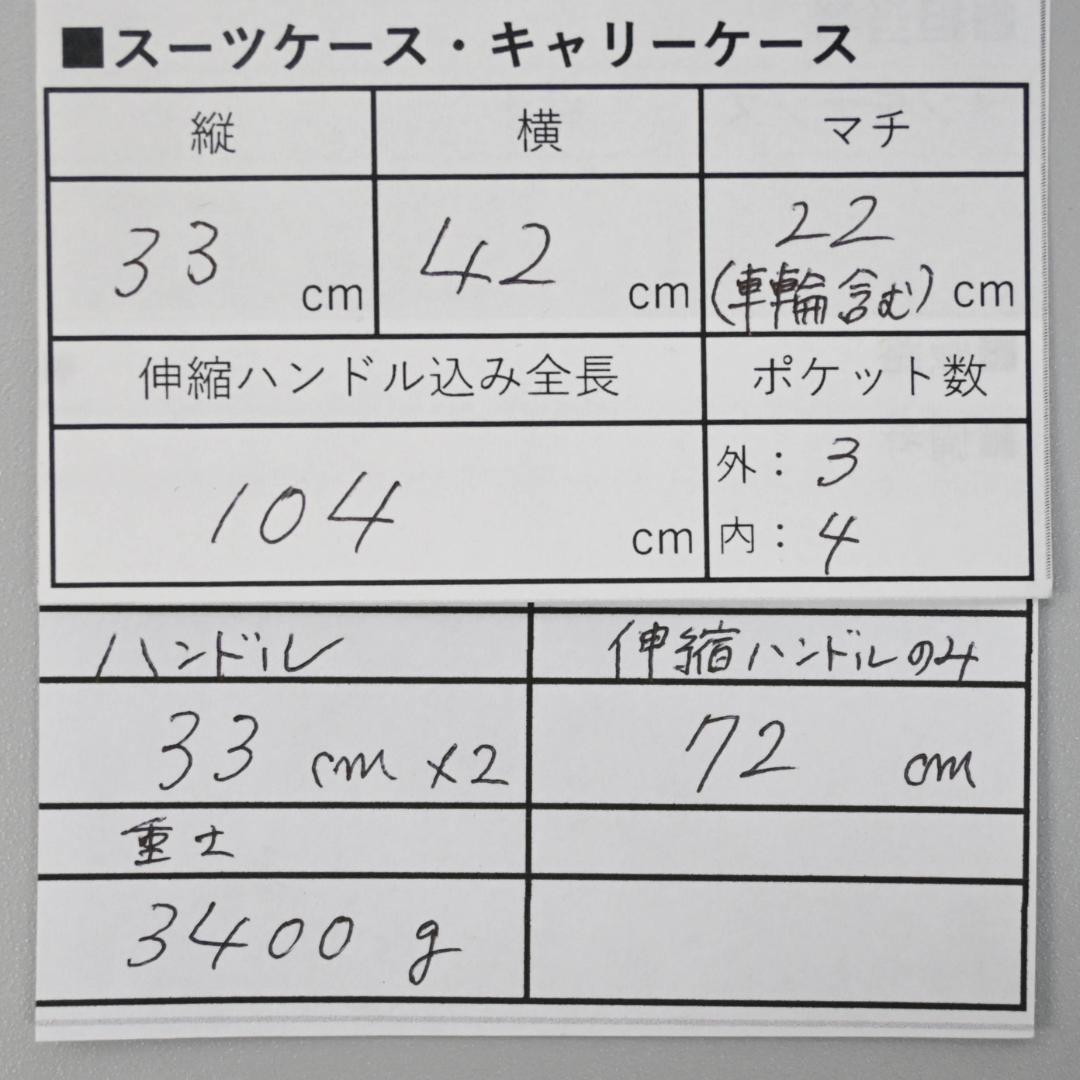 ■スーツケース・キャリーケース
縦 横 マチ
33 cm 42 cm 22 (車輪含む) cm
伸縮ハンドル込み全長 ポケット数
104 cm 外：3
内：4
ハンドル 伸縮ハンドルのみ
33 cm ×2 72 cm
重さ
3400 g